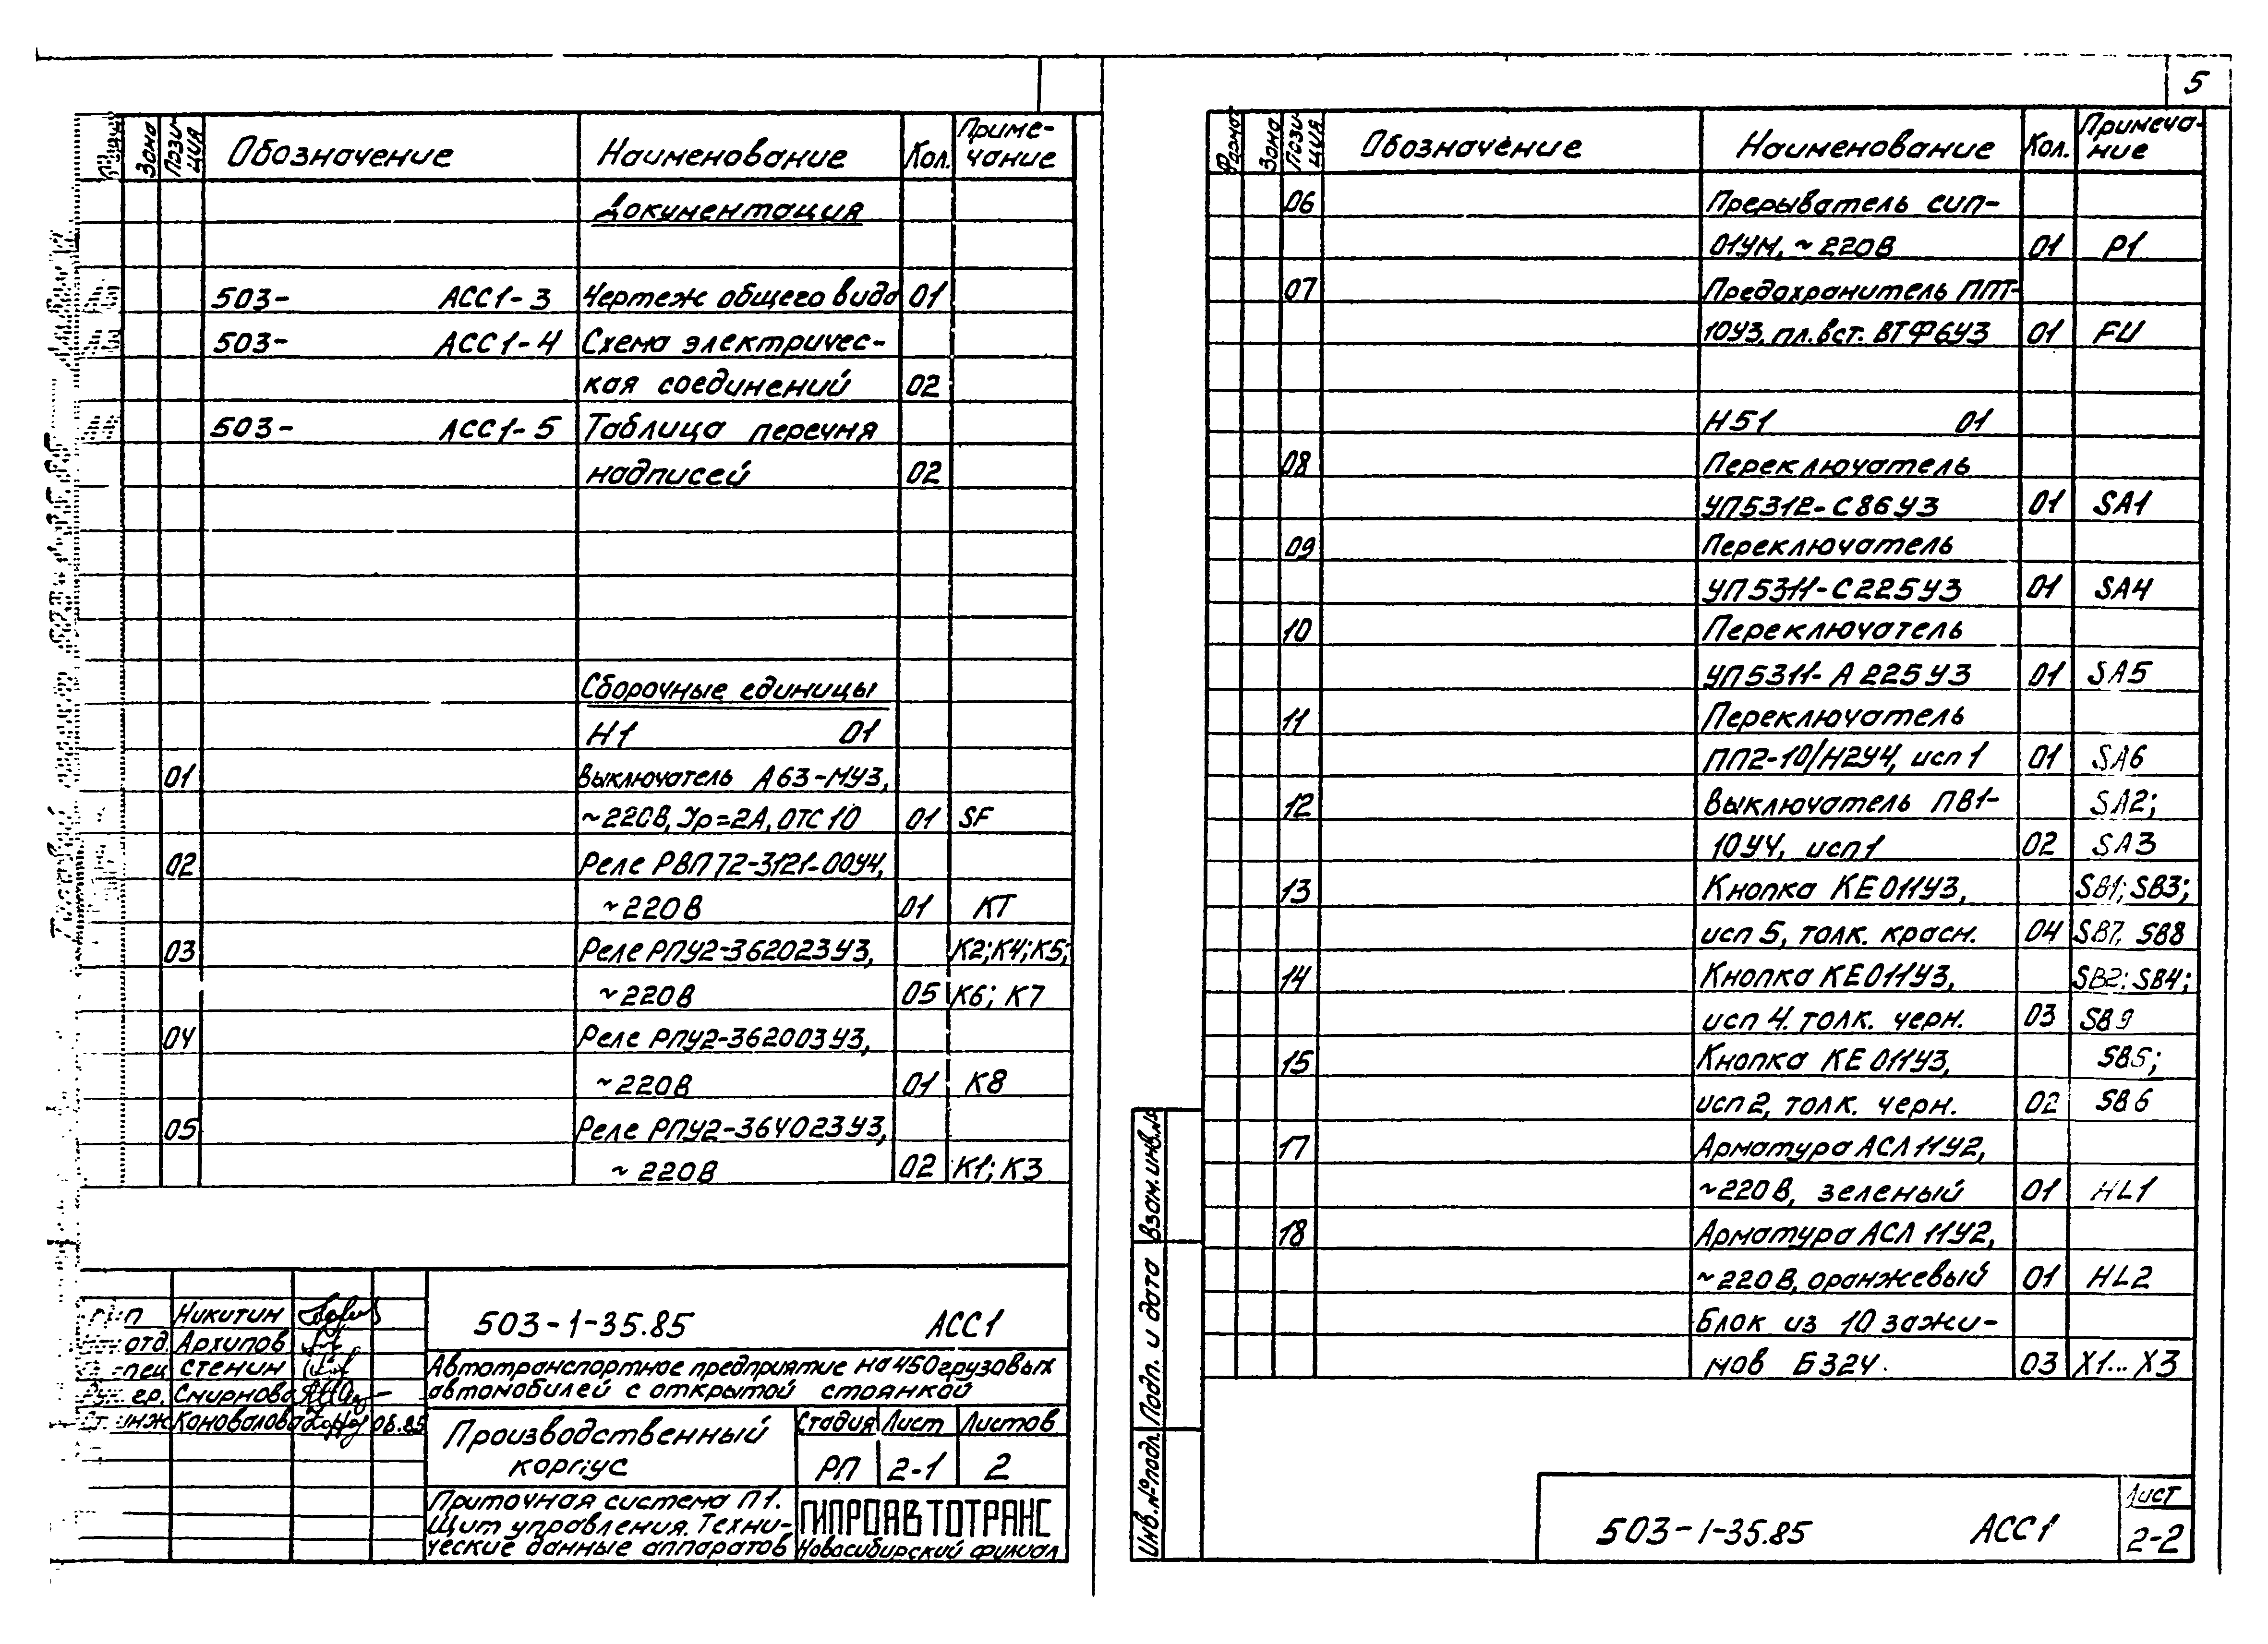 Зона Пози-ция Обозначение Наименование Кол. Приме-чание
Документация
503- АСС1-3 Чертеж общего вида 01
503- АСС1-4 Схема электричес-
кая соединений 02
503- АСС1-5 Таблица перечня
надписей 02
Сборочные единицы
Н1 01
01 Выключатель А63-МУ3,
~220В, Jр=2А, ОТС 10 01 SF
02 Реле РВП72-3121-00У4,
~220В 01 КТ
03 Реле РПУ2-362023У3, К2; К4; К5;
~220В 05 К6; К7
04 Реле РПУ2-362003У3,
~220В 01 К8
05 Реле РПУ2-364023У3,
~220В 02 К1; К3
Никитин
отд. Архипов
спец Стенин
Рук. гр. Смирнова
Ст. инж Коновалова 08.85
503-1-35.85 АСС1
Автотранспортное предприятие на 450 грузовых
автомобилей с открытой стоянкой
Производственный
корпус
Стадия Лист Листов
РП 2-1 2
Приточная система П1.
Щит управления. Техни-
ческие данные аппаратов
ГИПРОАВТОТРАНС
Новосибирский филиал
5
Формат Зона Пози-ция Обозначение Наименование Кол. Примеча-ние
06 Прерыватель СИП-
01УМ, ~220В 01 Р1
07 Предохранитель ППТ-
10У3, пл. вст. ВТФ6У3 01 FU
Н51 01
08 Переключатель
УП5312-С86У3 01 SA1
09 Переключатель
УП5311-С225У3 01 SA4
10 Переключатель
УП5311-А225У3 01 SA5
11 Переключатель
ПП2-10/Н2У4, исп 1 01 SA6
12 Выключатель ПВ1- SA2;
10У4, исп 1 02 SA3
13 Кнопка КЕ011У3, SB1; SB3;
исп 5, толк. красн. 04 SB7, SB8
14 Кнопка КЕ011У3, SB2; SB4;
исп 4. толк. черн. 03 SB9
15 Кнопка КЕ011У3, SB5;
исп 2, толк. черн. 02 SB6
17 Арматура АСЛ11У2,
~220В, зеленый 01 HL1
18 Арматура АСЛ11У2,
~220В, оранжевый 01 HL2
Блок из 10 зажи-
мов Б324. 03 Х1... Х3
Взам. инв. №
Подп. и дата
Инв. № подл.
503-1-35.85 АСС1
Лист
2-2